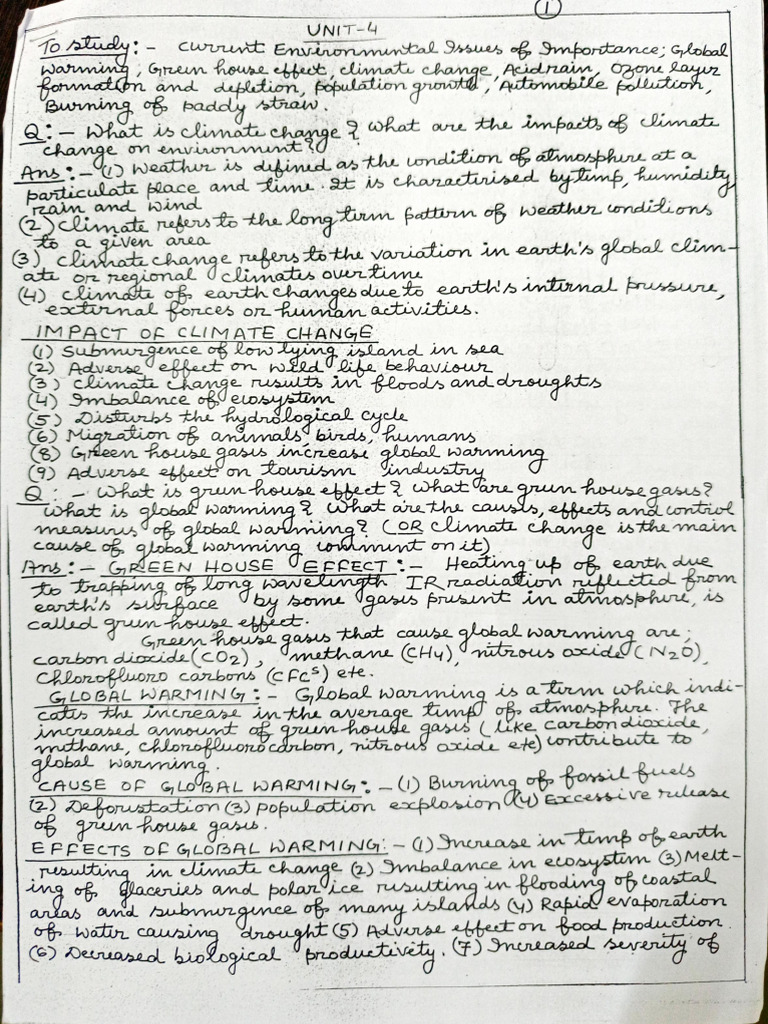 1
UNIT-4
To study:- Current Environmental Issues of Importance; Global
warming, Green house effect, climate change, Acid rain, Ozone layer
formation and depletion, population growth, Automobile pollution,
Burning of paddy straw.
Q:- What is climate change? What are the impacts of climate
change on environment?
Ans:- (1) Weather is defined as the condition of atmosphere at a
particulate place and time. It is characterised by temp, humidity,
rain and wind
(2) Climate refers to the long term pattern of weather conditions
to a given area
(3) Climate change refers to the variation in earth's global clim-
ate or regional climates over time
(4) climate of earth changes due to earth's internal pressure,
external forces or human activities.
IMPACT OF CLIMATE CHANGE
(1) Submergence of low lying island in sea
(2) Adverse effect on wild life behaviour
(3) Climate change results in floods and droughts
(4) Imbalance of ecosystem
(5) Disturbs the hydrological cycle
(6) Migration of animals, birds, humans
(8) Green house gases increase global warming
(9) Adverse effect on tourism industry
Q:- What is green house effect? What are green house gases?
What is global warming? What are the causes, effects and control
measures of global warming? (OR Climate change is the main
cause of global warming comment on it)
Ans:- GREEN HOUSE EFFECT:- Heating up of earth due
to trapping of long wavelength IR radiation reflected from
earth's surface by some gases present in atmosphere, is
called green house effect.
Green house gases that cause global warming are;
carbon dioxide (CO2), methane (CH4), nitrous oxide (N2O),
Chlorofluoro carbons (CFCs) etc.
GLOBAL WARMING:- Global warming is a term which indi-
cates the increase in the average temp of atmosphere. The
increased amount of green house gases (like carbon dioxide,
methane, chlorofluorocarbon, nitrous oxide etc) contribute to
global warming.
CAUSE OF GLOBAL WARMING:- (1) Burning of fossil fuels
(2) Deforestation (3) population explosion (4) Excessive release
of green house gases.
EFFECTS OF GLOBAL WARMING:- (1) Increase in temp of earth
resulting in climate change (2) Imbalance in ecosystem (3) Melt-
ing of glaceries and polar ice resulting in flooding of coastal
areas and submergence of many islands (4) Rapid evaporation
of water causing drought (5) Adverse effect on food production
(6) Decreased biological productivity. (7) Increased severity of